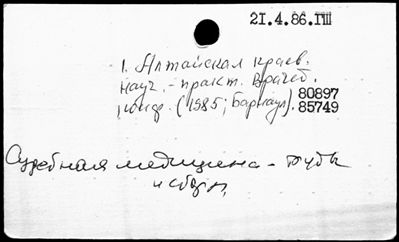 21.4.86.ГШ
1. Алтайская краев.
науч.-практ. врачеб.
конф. (1985; Барнаул). 80897
85749
Судебная медицина - труды
и сборн.